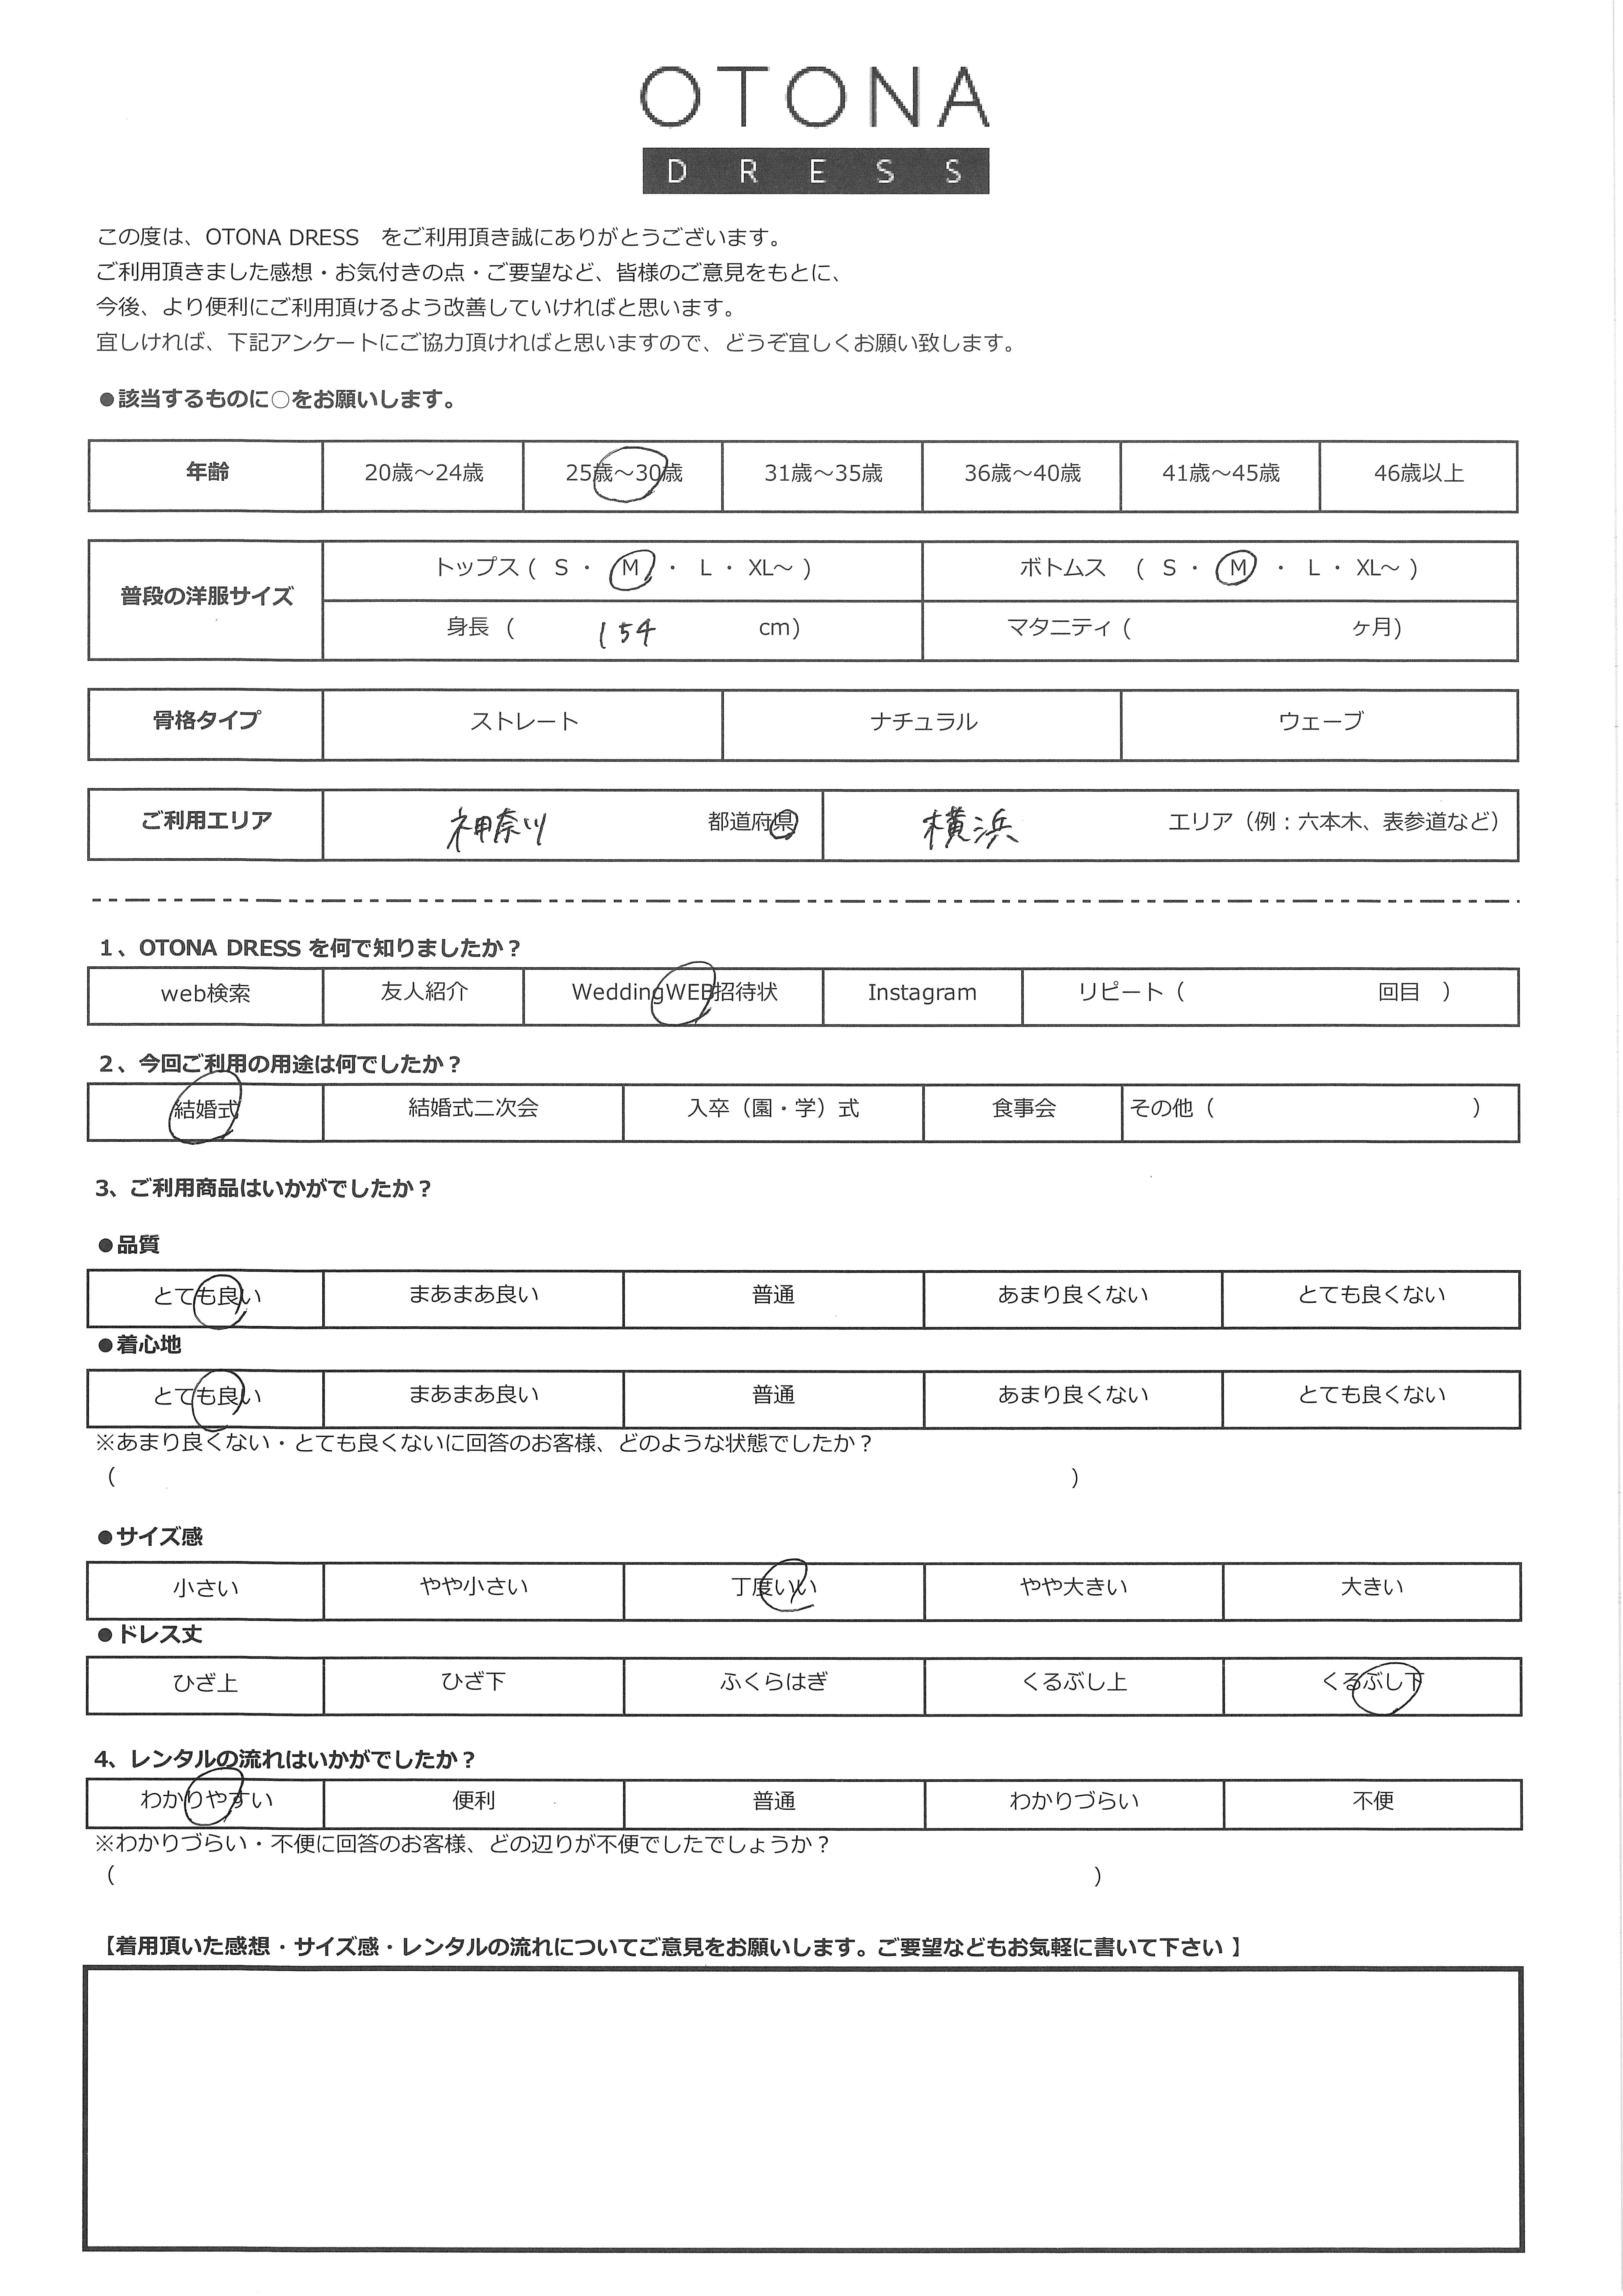 OTONA
DRESS
この度は、OTONA DRESS　をご利用頂き誠にありがとうございます。
ご利用頂きました感想・お気付きの点・ご要望など、皆様のご意見をもとに、
今後、より便利にご利用頂けるよう改善していければと思います。
宜しければ、下記アンケートにご協力頂ければと思いますので、どうぞ宜しくお願い致します。
●該当するものに○をお願いします。
年齢 20歳～24歳 25歳～30歳 31歳～35歳 36歳～40歳 41歳～45歳 46歳以上
普段の洋服サイズ トップス ( S ・ M ・ L ・ XL～ ) ボトムス ( S ・ M ・ L ・ XL～ )
身長 ( 154 cm) マタニティ ( ヶ月)
骨格タイプ ストレート ナチュラル ウェーブ
ご利用エリア 神奈川 都道府県 横浜 エリア（例：六本木、表参道など）
1、OTONA DRESS を何で知りましたか？
web検索 友人紹介 WeddingWEB招待状 Instagram リピート（ 回目 ）
2、今回ご利用の用途は何でしたか？
結婚式 結婚式二次会 入卒（園・学）式 食事会 その他（ ）
3、ご利用商品はいかがでしたか？
●品質
とても良い まあまあ良い 普通 あまり良くない とても良くない
●着心地
とても良い まあまあ良い 普通 あまり良くない とても良くない
※あまり良くない・とても良くないに回答のお客様、どのような状態でしたか？
（ ）
●サイズ感
小さい やや小さい 丁度いい やや大きい 大きい
●ドレス丈
ひざ上 ひざ下 ふくらはぎ くるぶし上 くるぶし下
4、レンタルの流れはいかがでしたか？
わかりやすい 便利 普通 わかりづらい 不便
※わかりづらい・不便に回答のお客様、どの辺りが不便でしたでしょうか？
（ ）
【着用頂いた感想・サイズ感・レンタルの流れについてご意見をお願いします。ご要望などもお気軽に書いて下さい 】